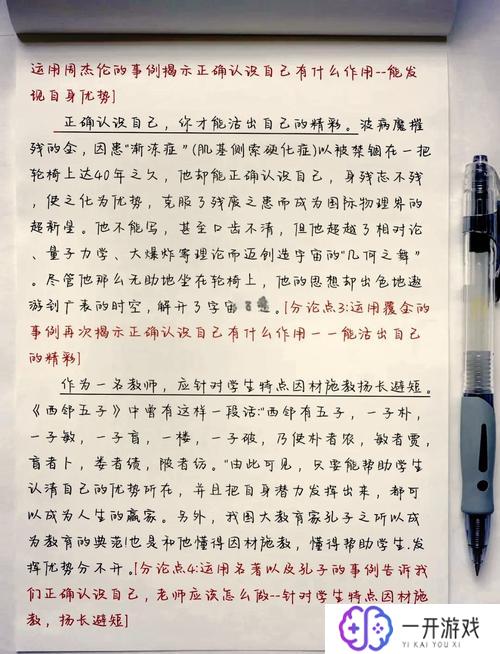 运用周杰伦的事例揭示正确认识自己有什么作用--能发
现自身优势]
正确认识自己,你才能活出自己的精彩。被病魔摧
残的金,因患"渐冻症"(肌基侧索硬化症)以被禁锢在一把
轮椅上达40年之久,他却能正确认识自己,身残志不残
,使之化为优势,克服了残废之患而成为国际物理界的
超新星。他不能写,甚至口齿不清,但他超越了相对论
、量子力学、大爆炸等理论而迈创造宇宙的"几何之舞"
。尽管他那么无助地坐在轮椅上,他的思想却出色地遨
游到广袤的时空,解开了宇宙 。[分论点3:运用霍金的
事例再次揭示正确认识自己有什么作用--能活出自己
的精彩]
作为一名教师,应针对学生特点因材施教扬长避短。
《西邻五子》中曾有这样一段话:"西邻有五子,一子朴,
一子敏,一子盲,一偻,一子破,乃使朴者农,敏者贾,
盲者卜,娄者绩,陂者纺。"由此可见,只要能帮助学生
认清自己的优势所在,并且把自身潜力发挥出来,都可
以成为人生的赢家。另外,我国大教育家孔子之所以成
为教育的典范!也是和他懂得因材施教,懂得帮助学生发
挥优势分不开。[分论点4:运用名著以及孔子的事例告诉我
们正确认识自己,老师应该怎么做--针对学生特点因材施
教,扬长避短]
一开游戏
YI KAI YOU XI